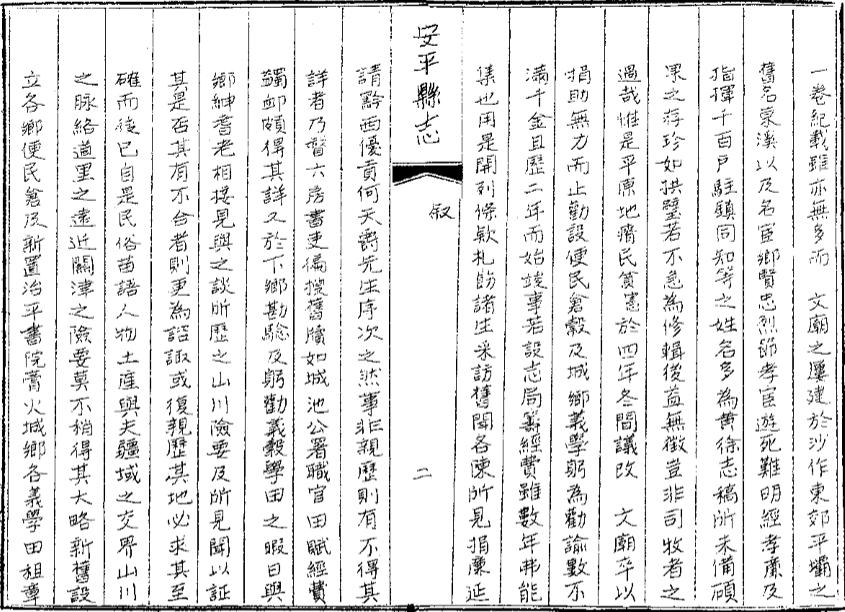 一卷紀載雖亦無多而　文廟之屢建於沙作東郊平壩之
舊名東溪以及名宦鄉賢忠烈節孝宦遊死難明經孝廉及
指揮千百戶駐鎮同知等之姓名多為黃徐志稿所未備碩
果之存珍如拱璧若不急為修輯後益無徵豈非司牧者之
過哉惟是平原地瘠民貧憲於四年冬間議改　文廟卒以
捐助無力而止勸設便民倉穀及城鄉義學躬為勸諭數不
滿千金且歷二年而始竣事若設志局籌經費雖數年弗能
集也用是開列條款札飭諸生采訪舊聞各陳所見捐廉延
安平縣志
敘
二
請黔西優貢何天壽先生序次之然事非親歷則有不得其
詳者乃督六房書吏徧搜舊牘如城池公署職官田賦經費
蠲卹頗得其詳又於下鄉勘驗及躬勸義穀學田之暇日與
鄉紳耆老相接見與之談所歷之山川險要及所見聞以証
其是否其有不合者則更為諮諏或復親歷其地必求其至
確而後已自是民俗苗語人物土產與夫疆域之交界山川
之脉絡道里之遠近關津之險要莫不稍得其大略新舊設
立各鄉便民倉及新置治平書院膏火城鄉各義學田租章